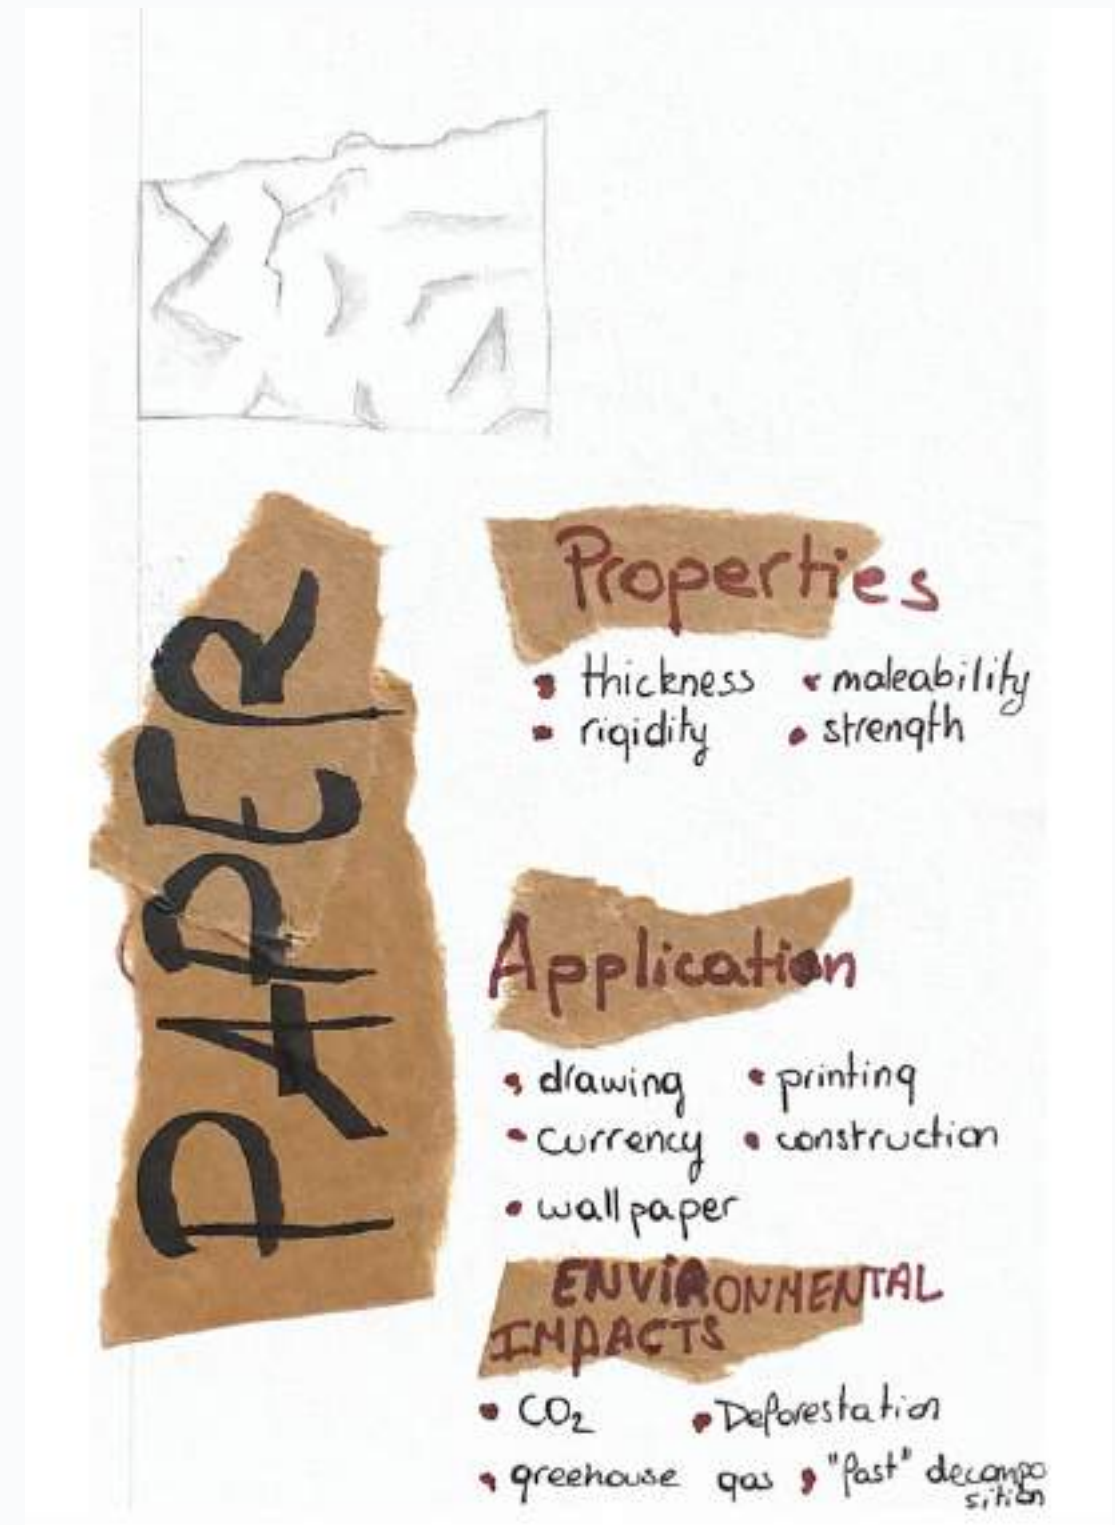 PAPER
Properties
• thickness • maleability
• rigidity • strength
Application
• drawing • printing
• currency • construction
• wallpaper
ENViRONMENTAL
IMPACTS
• CO₂ • Deforestation
• greehouse gas • "fast" decompo
sition